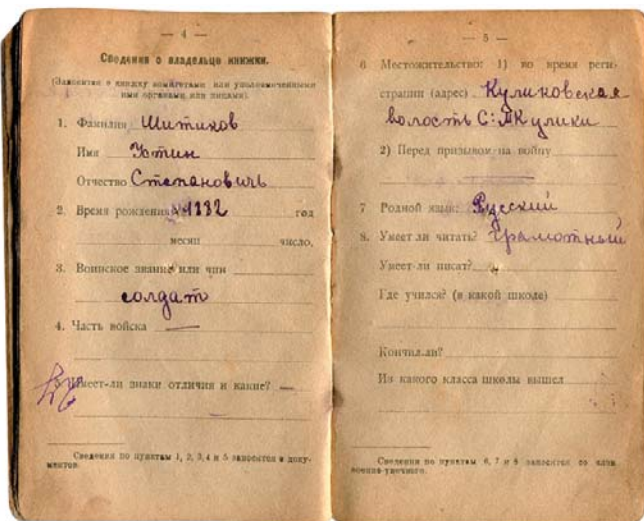 — 4 —
Сведения о владельце книжки.
(Заносятся в книжку комитетами или уполномоченными
ими органами или лицами).
1. Фамилия Шитиков
Имя
Отчество Степановичь
2. Время рождения год
месяц число,
3. Воинское звание или чин
солдат
4. Часть войска —
5. Имеет-ли знаки отличия и какие? —
Сведения по пунктам 1, 2, 3, 4 и 5 заносятся из доку-
ментов.
— 5 —
6 Местожительство: 1) во время реги-
страции (адрес) Куликовская
волость Кулики
2) Перед призывом на войну
7 Родной язык: Русский
8. Умеет ли читать? Грамотный
Умеет-ли писать?
Где учился? (в какой школе)
Кончил-ли?
Из какого класса школы вышел
Сведения по пунктам 6, 7 и 8 заносятся со слов
военно-увечного.